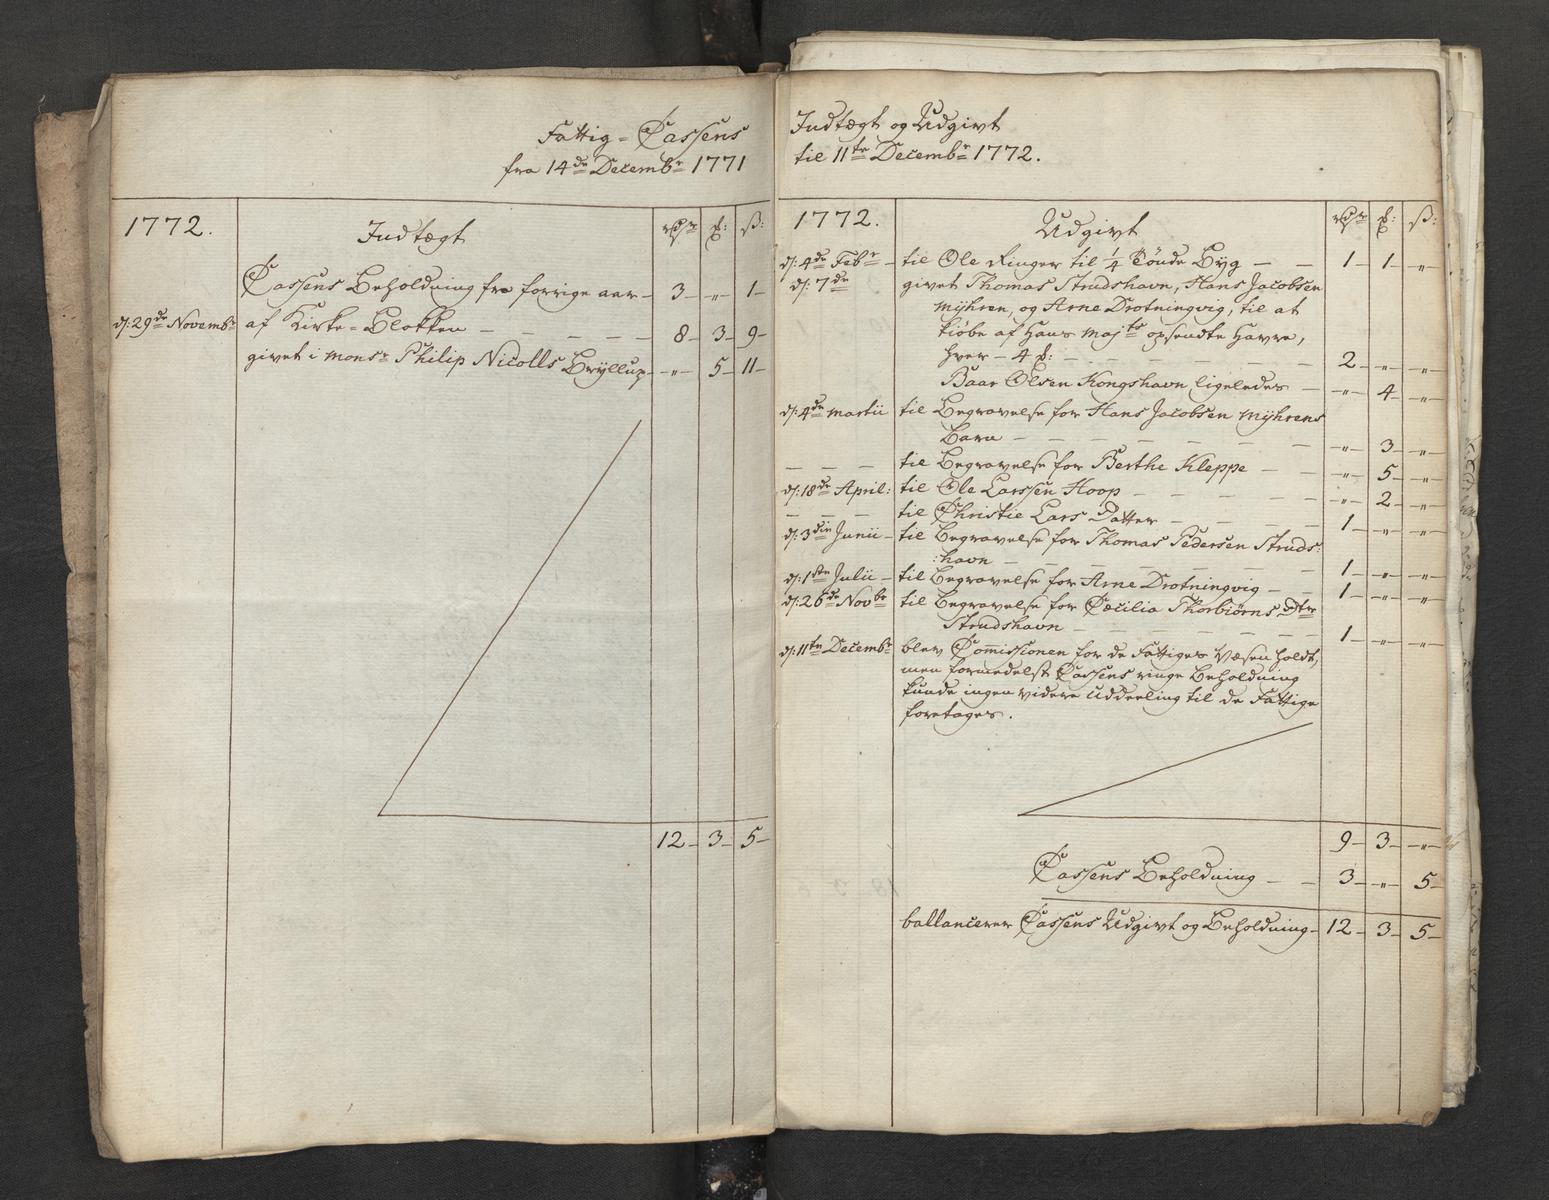 Fattig-Cassens
fra 14de Decembr 1771
1772. Indtægt rdr £: ß:
Cassens Beholdning fra forrige aar – 3 – „ – 1 –
d: 29de Novembr af Kirke-Blokken – – – – 8 – 3 – 9 –
givet i Monsr Philip Nicolls Bryllup – „ – 5 – 11 –
12 – 3 – 5 –
Indtægt og Udgivt
til 11te Decembr 1772.
1772. Udgivt rdr £: ß:
d: 4de Febr – til Ole Ringer til 1/4 Tønde Byg – – 1 – 1 – „ –
d: 7de givet Thomas Strudshavn, Hans Jacobsen
Myhren, og Arne Drotningvig, til at
kiøbe af Hans Majts opsendte Havre,
hver – 4 £: – – – – – – 2 – „ – „ –
Baar Olsen Kongshavn ligeledes – „ – 4 – „ –
d: 4de Martii til Begravelse for Hans Jacobsen Myhrens
Barn – – – – – – – „ – 3 – „ –
– – – til Begravelse for Berthe Kleppe – – „ – 5 – „ –
d: 18de April: til Ole Larssen Hoop – – – – „ – 2 – „ –
– – – til Christie Lars Datter – – – – 1 – „ – „ –
d: 3die Junii – til Begravelse for Thomas Pedersen Struds:
:havn – – – – – – – 1 – „ – „ –
d: 1ste Julii – til Begravelse for Arne Drotningvig – – 1 – „ – „ –
d: 26de Novbr til Begravelse for Cæcilia Thorbiørns dttr
Strudshavn – – – – – – 1 – „ – „ –
d: 11te Decembr blev Comissionen for de Fattiges Væsen holdt,
men formedelst Cassens ringe Beholdning
kunde ingen videre Uddeeling til de Fattige
foretages.
9 – 3 – „ –
Cassens Beholdning – – 3 – „ – 5 –
ballancerer Cassens Udgivt og Beholdning – 12 – 3 – 5 –